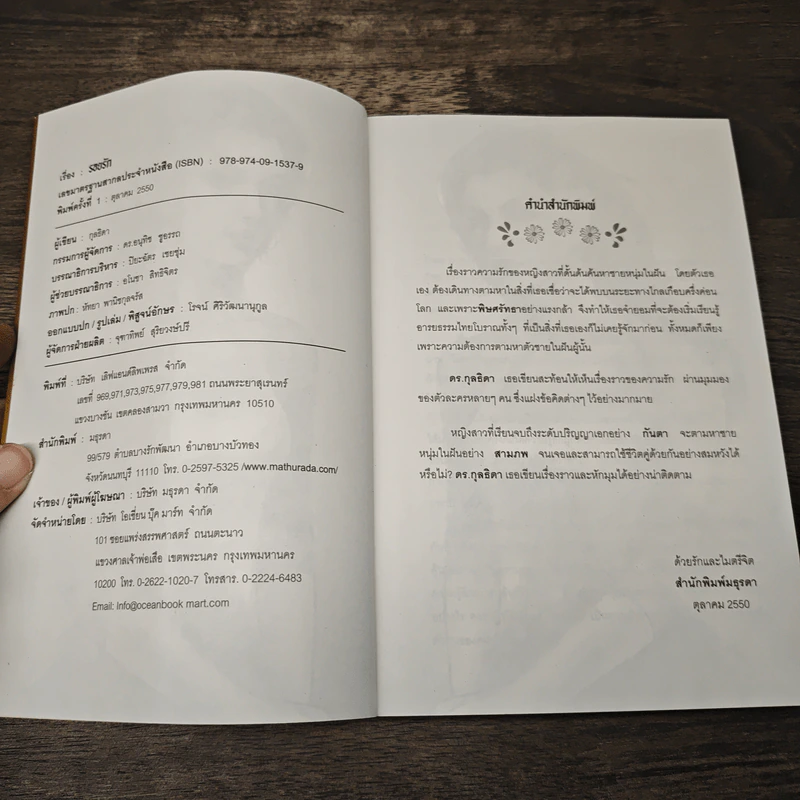 เรื่อง : รอยรัก
เลขมาตรฐานสากลประจำหนังสือ (ISBN) : 978-974-09-1537-9
พิมพ์ครั้งที่ 1 : ตุลาคม 2550
ผู้เขียน : กุลธิดา
กรรมการผู้จัดการ : ดร.อนุทิช ชูอรรถ
บรรณาธิการบริหาร : ปิยะฉัตร เชยชุ่ม
ผู้ช่วยบรรณาธิการ : อโนชา สิทธิจิตร
ภาพปก : หัทยา พานิชกุลจรัส
ออกแบบปก / รูปเล่ม / พิสูจน์อักษร : โรจน์ ศิริวัฒนานุกูล
ผู้จัดการฝ่ายผลิต : จุฑาทิพย์ สุริยวงษ์ปรี
พิมพ์ที่ : บริษัท เลิฟแอนด์ลิพเพรส จำกัด
เลขที่ 969,971,973,975,977,979,981 ถนนพระยาสุเรนทร์
แขวงบางชัน เขตคลองสามวา กรุงเทพมหานคร 10510
สำนักพิมพ์ : มธุรดา
99/579 ตำบลบางรักพัฒนา อำเภอบางบัวทอง
จังหวัดนนทบุรี 11110 โทร. 0-2597-5325 /www.mathurada.com/
เจ้าของ / ผู้พิมพ์ผู้โฆษณา : บริษัท มธุรดา จำกัด
จัดจำหน่ายโดย : บริษัท โอเชี่ยน บุ๊ค มาร์ท จำกัด
101 ซอยแพร่งสรรพศาสตร์ ถนนตะนาว
แขวงศาลเจ้าพ่อเสือ เขตพระนคร กรุงเทพมหานคร
10200 โทร. 0-2622-1020-7 โทรสาร. 0-2224-6483
Email: Info@oceanbook mart.com
คำนำสำนักพิมพ์
เรื่องราวความรักของหญิงสาวที่ดั้นด้นค้นหาชายหนุ่มในฝัน โดยตัวเธอ
เอง ต้องเดินทางตามหาในสิ่งที่เธอเชื่อว่าจะได้พบบนระยะทางไกลเกือบครึ่งค่อน
โลก และเพราะพิษศรัทธาอย่างแรงกล้า จึงทำให้เธอจำยอมที่จะต้องเริ่มเรียนรู้
อารยธรรมไทยโบราณทั้งๆ ที่เป็นสิ่งที่เธอเองก็ไม่เคยรู้จักมาก่อน ทั้งหมดก็เพียง
เพราะความต้องการตามหาตัวชายในฝันผู้นั้น
ดร.กุลธิดา เธอเขียนสะท้อนให้เห็นเรื่องราวของความรัก ผ่านมุมมอง
ของตัวละครหลายๆ คน ซึ่งแฝงข้อคิดต่างๆ ไว้อย่างมากมาย
หญิงสาวที่เรียนจบถึงระดับปริญญาเอกอย่าง กันตา จะตามหาชาย
หนุ่มในฝันอย่าง สามภพ จนเจอและสามารถใช้ชีวิตคู่ด้วยกันอย่างสมหวังได้
หรือไม่? ดร.กุลธิดา เธอเขียนเรื่องราวและหักมุมได้อย่างน่าติดตาม
ด้วยรักและไมตรีจิต
สำนักพิมพ์มธุรดา
ตุลาคม 2550